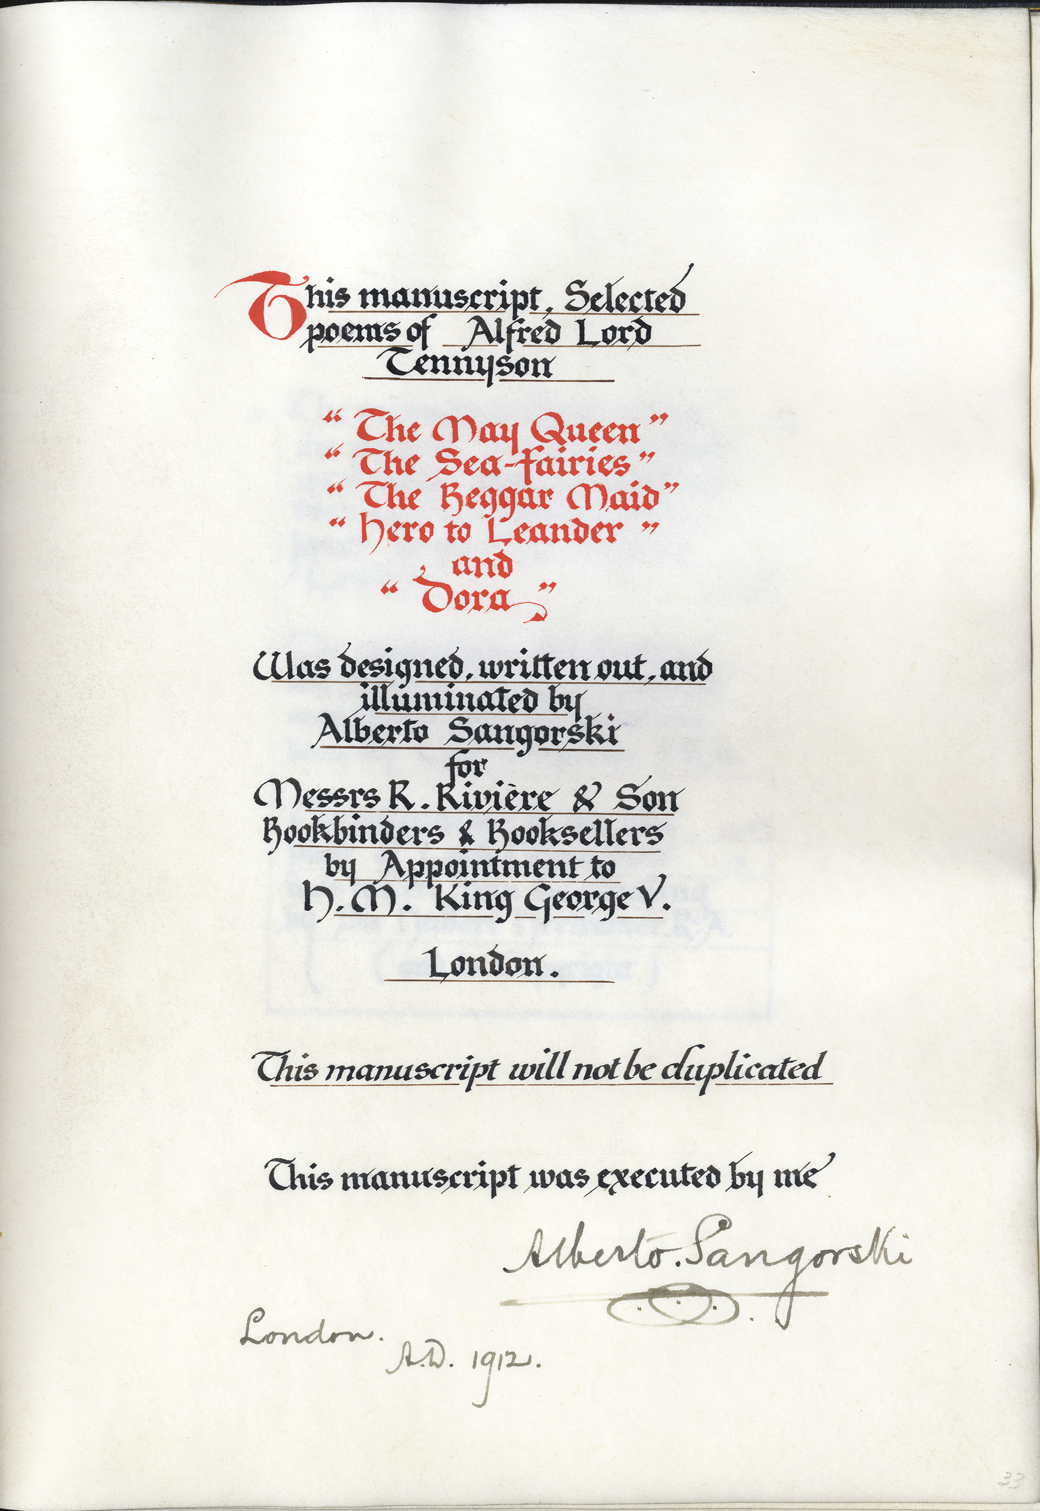 This manuscript, Selected
poems of Alfred Lord
Tennyson
“ The May Queen ”
“ The Sea-fairies ”
“ The Beggar Maid ”
“ Hero to Leander ”
and
“ Dora ”
Was designed, written out, and
illuminated by
Alberto Sangorski
for
Messrs R. Rivière & Son
Bookbinders & Booksellers
by Appointment to
H. M. King George V.
London.
This manuscript will not be duplicated
This manuscript was executed by me
Alberto. Sangorski
London.
A.D. 1912.
33